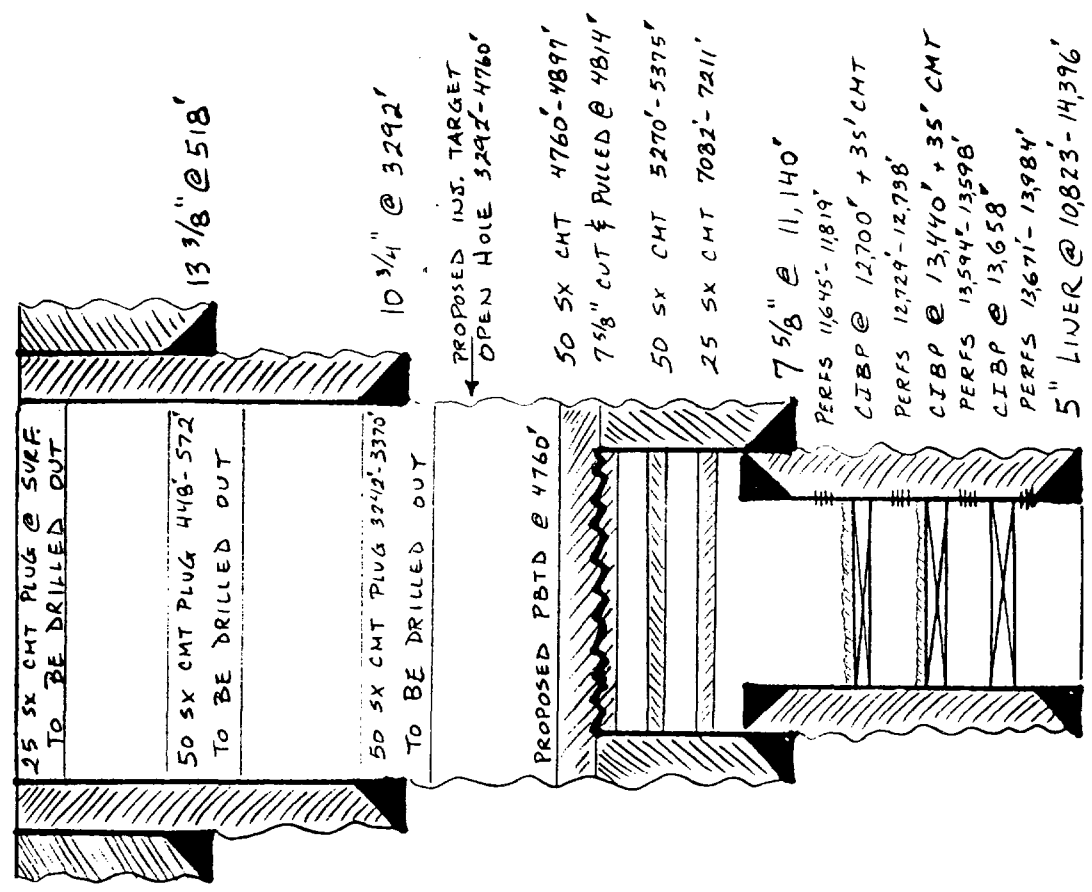 25 SX CMT PLUG @ SURF.
TO BE DRILLED OUT
50 SX CMT PLUG 448'-572'
TO BE DRILLED OUT
13 3/8" @ 518'
50 SX CMT PLUG 3242'-3370'
TO BE DRILLED OUT
10 3/4" @ 3292'
PROPOSED INJ. TARGET
OPEN HOLE 3292'-4760'
PROPOSED PBTD @ 4760'
50 SX CMT 4760'-4897'
7 5/8" CUT & PULLED @ 4814'
50 SX CMT 5270'-5375'
25 SX CMT 7082'-7211'
7 5/8" @ 11,140'
PERFS 11,645'-11,819'
CIBP @ 12,700' + 35' CMT
PERFS 12,729'-12,798'
CIBP @ 13,440' + 35' CMT
PERFS 13,594'-13,598'
CIBP @ 13,658'
PERFS 13,671'-13,984'
5" LINER @ 10,823'-14,396'